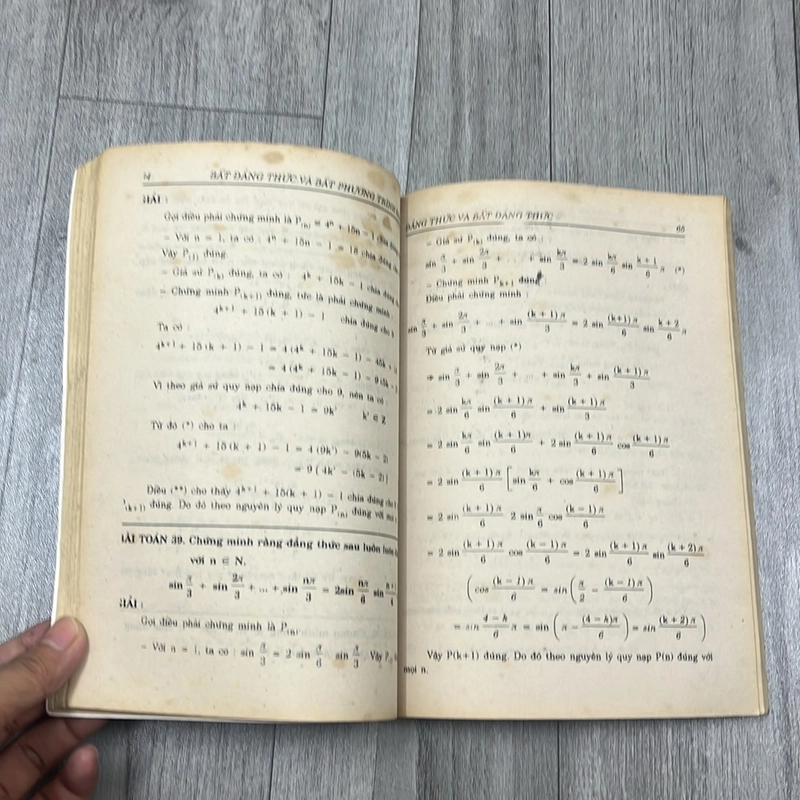 BẤT ĐẲNG THỨC VÀ BẤT PHƯƠNG TRÌNH
Gọi điều phải chứng minh là P(n) = 4ⁿ + 15n − 1 chia đúng
− Với n = 1, ta có : 4ⁿ + 15n − 1 = 18 chia đúng
Vậy P(1) đúng.
− Giả sử P(k) đúng, ta có : 4ᵏ + 15k − 1 chia đúng
− Chứng minh P(k+1) đúng, tức là phải chứng minh :
4ᵏ⁺¹ + 15(k + 1) − 1 chia đúng cho
Ta có :
4ᵏ⁺¹ + 15(k + 1) − 1 = 4(4ᵏ + 15k − 1) − 45k +
= 4(4ᵏ + 15k − 1) − 9(5k −
Vì theo giả sử quy nạp chia đúng cho 9, nên ta có :
4ᵏ + 15k − 1 = 9k' k' ∈ Z
Từ đó (*) cho ta :
4ᵏ⁺¹ + 15(k + 1) − 1 = 4(9k') − 9(5k − 2)
= 9[4k' − (5k − 2)]
Điều (**) cho thấy 4ᵏ⁺¹ + 15(k + 1) − 1 chia đúng cho
đúng. Do đó theo nguyên lý quy nạp P(n) đúng với mọi
BÀI TOÁN 39. Chứng minh rằng đẳng thức sau luôn luôn
với n ∈ N.
sin π/3 + sin 2π/3 + ... + sin nπ/3 = 2sin nπ/6 sin
GIẢI :
Gọi điều phải chứng minh là P(n).
− Với n = 1, ta có : sin π/3 = 2 sin π/6 sin π/3. Vậy
ĐẲNG THỨC VÀ BẤT ĐẲNG THỨC 65
− Giả sử P(k) đúng, ta có :
sin π/3 + sin 2π/3 + ... + sin kπ/3 = 2 sin kπ/6 sin (k + 1)/6 π (*)
− Chứng minh Pk+1 đúng
Điều phải chứng minh :
sin π/3 + sin 2π/3 + ... + sin (k + 1)π/3 = 2 sin (k+1)π/6 sin (k + 2)/6 π
Từ giả sử quy nạp (*)
⇒ sin π/3 + sin 2π/3 + ... + sin kπ/3 + sin (k + 1)π/3
= 2 sin kπ/6 sin (k + 1)π/6 + sin (k + 1)π/3
= 2 sin kπ/6 sin (k + 1)π/6 + 2 sin (k + 1)π/6 cos (k + 1)π/6
= 2 sin (k + 1)π/6 [sin kπ/6 + cos (k + 1)π/6]
= 2 sin (k + 1)π/6 2 sin π/6 cos (k − 1)π/6
= 2 sin (k + 1)π/6 cos (k − 1)π/6 = 2 sin (k + 1)π/6 sin (k + 2)π/6
(cos (k − 1)π/6 = sin (π/2 − (k − 1)π/6)
= sin (4 − k)/6 π = sin (π − (4 − k)π/6) = sin (k + 2)π/6)
Vậy P(k+1) đúng. Do đó theo nguyên lý quy nạp P(n) đúng với
mọi n.